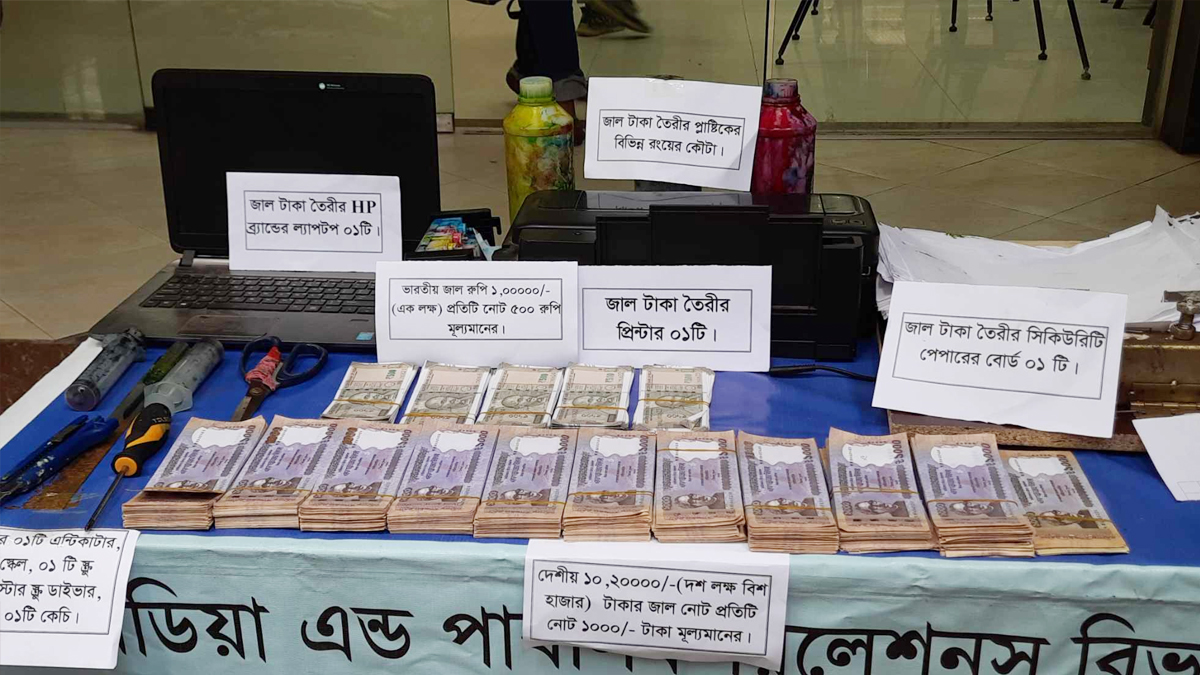 জাল টাকা তৈরীর প্লাষ্টিকের
বিভিন্ন রংয়ের কৌটা।
জাল টাকা তৈরীর HP
ব্র্যান্ডের ল্যাপটপ ০১টি।
ভারতীয় জাল রুপি ১,০০০০০/-
(এক লক্ষ) প্রতিটি নোট ৫০০ রুপি
মূল্যমানের।
জাল টাকা তৈরীর
প্রিন্টার ০১টি।
জাল টাকা তৈরীর সিকিউরিটি
পেপারের বোর্ড ০১ টি।
র ০১টি এন্টিকাটার,
স্কেল, ০১ টি স্ক্রু
স্টার স্ক্রু ডাইভার,
০১টি কেচি।
দেশীয় ১০,২০০০০/-(দশ লক্ষ বিশ
হাজার) টাকার জাল নোট প্রতিটি
নোট ১০০০/- টাকা মূল্যমানের।
ডিয়া এন্ড পা রিলেশনস বিভ